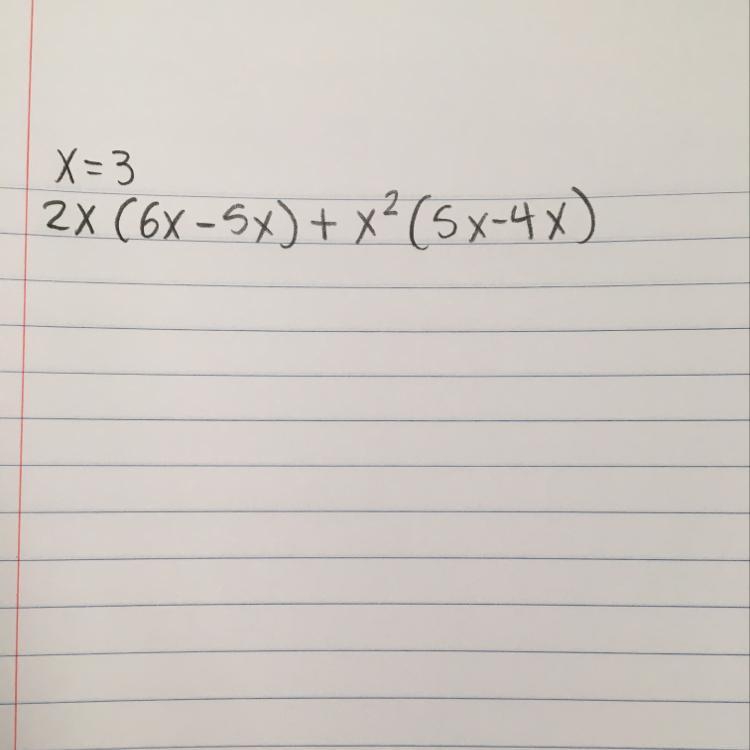 x=3
2x(6x-5x)+x²(5x-4x)